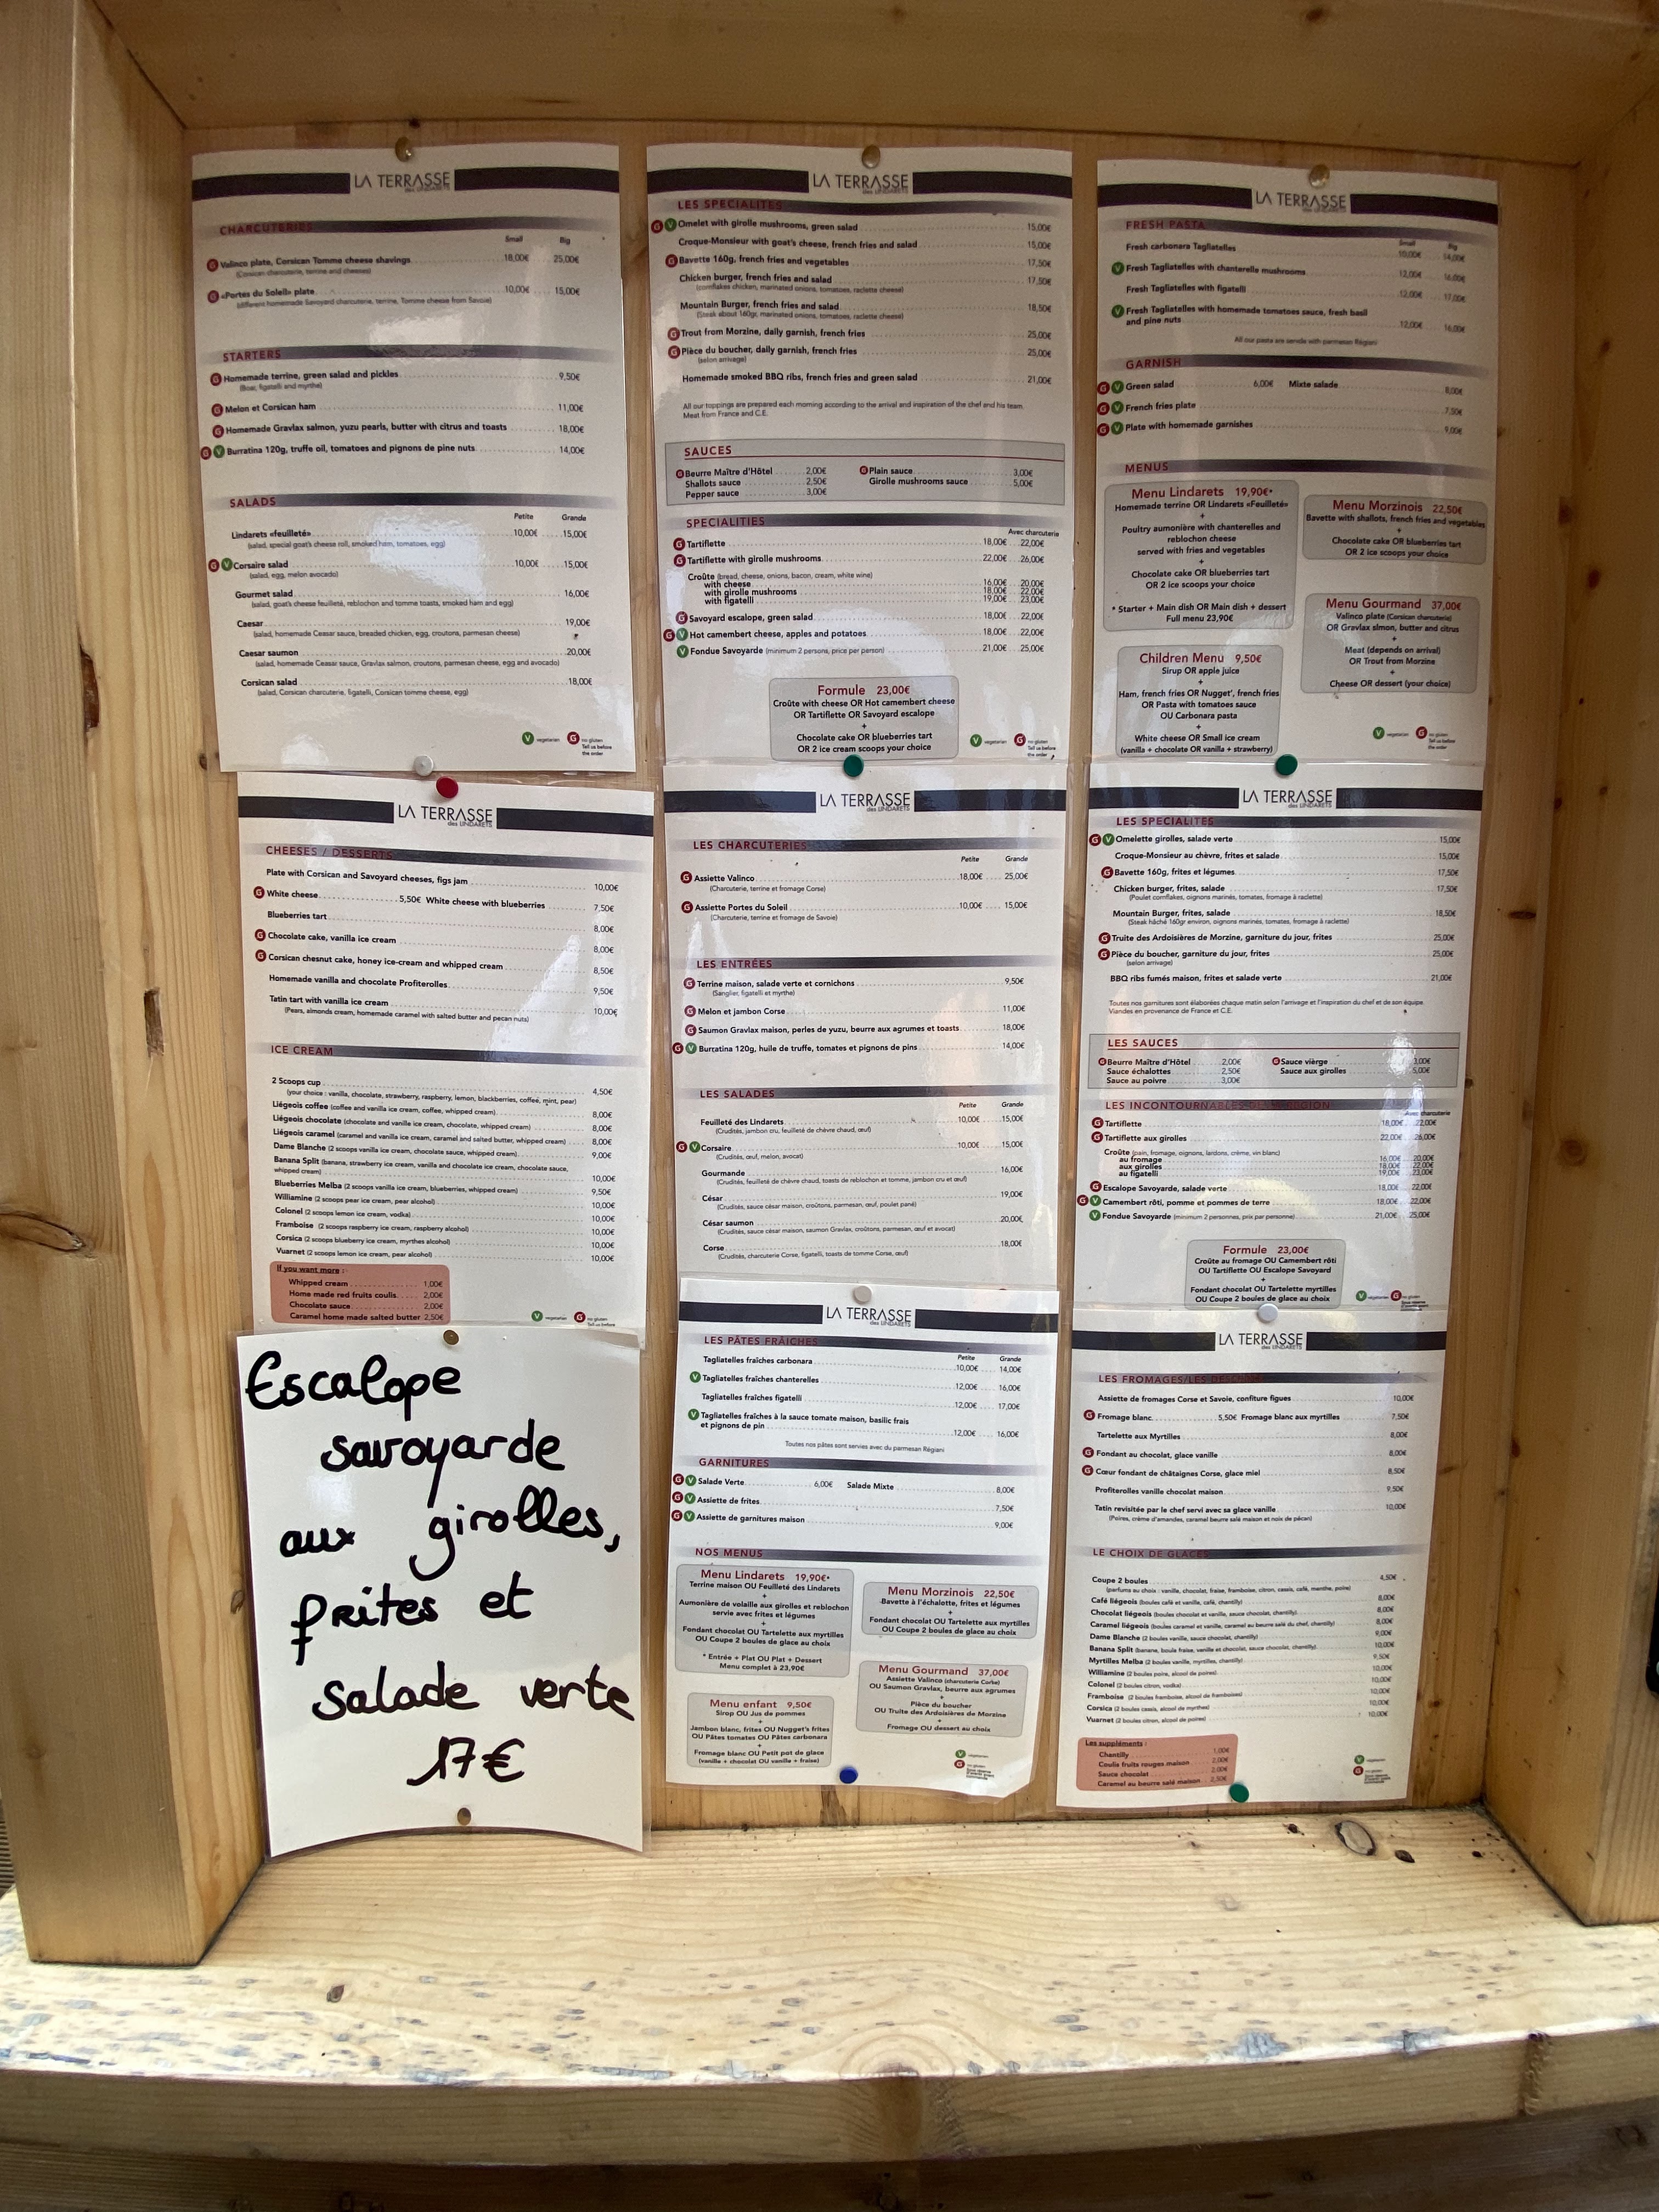 LA TERRASSE
CHARCUTERIES
Small Big
G Valinco plate, Corsican Tomme cheese shavings 18,00€ 25,00€
(Corsican charcuterie, terrine and cheeses)
G «Portes du Soleil» plate 10,00€ 15,00€
(different homemade Savoyard charcuterie, terrine, Tomme cheese from Savoie)
STARTERS
G Homemade terrine, green salad and pickles 9,50€
(Boar, figatelli and myrthe)
G Melon et Corsican ham 11,00€
G Homemade Gravlax salmon, yuzu pearls, butter with citrus and toasts 18,00€
G V Burratina 120g, truffe oil, tomatoes and pignons de pine nuts 14,00€
SALADS
Petite Grande
Lindarets «feuilleté» 10,00€ 15,00€
(salad, special goat's cheese roll, smoked ham, tomatoes, egg)
G V Corsaire salad 10,00€ 15,00€
(salad, egg, melon avocado)
Gourmet salad 16,00€
(salad, goat's cheese feuilleté, reblochon and tomme toasts, smoked ham and egg)
Caesar 19,00€
(salad, homemade Ceasar sauce, breaded chicken, egg, croutons, parmesan cheese)
Caesar saumon 20,00€
(salad, homemade Ceasar sauce, Gravlax salmon, croutons, parmesan cheese, egg and avocado)
Corsican salad 18,00€
(salad, Corsican charcuterie, figatelli, Corsican tomme cheese, egg)
V vegetarian G no gluten
Tell us before
the order
LA TERRASSE
des LINDARETS
LES SPECIALITES
G V Omelet with girolle mushrooms, green salad 15,00€
Croque-Monsieur with goat's cheese, french fries and salad 15,00€
G Bavette 160g, french fries and vegetables 17,50€
Chicken burger, french fries and salad 17,50€
(cornflakes chicken, marinated onions, tomatoes, raclette cheese)
Mountain Burger, french fries and salad 18,50€
(Steak about 160gr, marinated onions, tomatoes, raclette cheese)
G Trout from Morzine, daily garnish, french fries 25,00€
G Pièce du boucher, daily garnish, french fries 25,00€
(selon arrivage)
Homemade smoked BBQ ribs, french fries and green salad 21,00€
All our toppings are prepared each morning according to the arrival and inspiration of the chef and his team.
Meat from France and C.E.
SAUCES
G Beurre Maître d'Hôtel 2,00€ G Plain sauce 3,00€
Shallots sauce 2,50€ Girolle mushrooms sauce 5,00€
Pepper sauce 3,00€
SPECIALITIES
Avec charcuterie
G Tartiflette 18,00€ 22,00€
G Tartiflette with girolle mushrooms 22,00€ 26,00€
Croûte (bread, cheese, onions, bacon, cream, white wine)
with cheese 16,00€ 20,00€
with girolle mushrooms 18,00€ 22,00€
with figatelli 19,00€ 23,00€
G Savoyard escalope, green salad 18,00€ 22,00€
G V Hot camembert cheese, apples and potatoes 18,00€ 22,00€
V Fondue Savoyarde (minimum 2 persons, price per person) 21,00€ 25,00€
Formule 23,00€
Croûte with cheese OR Hot camembert cheese
OR Tartiflette OR Savoyard escalope
+
Chocolate cake OR blueberries tart
OR 2 ice cream scoops your choice
V vegetarian G no gluten
Tell us before
the order
LA TERRASSE
FRESH PASTA
Small Big
Fresh carbonara Tagliatelles 10,00€ 14,00€
V Fresh Tagliatelles with chanterelle mushrooms 12,00€ 16,00€
Fresh Tagliatelles with figatelli 12,00€ 17,00€
V Fresh Tagliatelles with homemade tomatoes sauce, fresh basil
and pine nuts 12,00€ 16,00€
All our pasta are servide with parmesan Régiani
GARNISH
G V Green salad 6,00€ Mixte salade 8,00€
G V French fries plate 7,50€
G V Plate with homemade garnishes 9,00€
MENUS
Menu Lindarets 19,90€*
Homemade terrine OR Lindarets «Feuilleté»
+
Poultry aumonière with chanterelles and
reblochon cheese
served with fries and vegetables
+
Chocolate cake OR blueberries tart
OR 2 ice scoops your choice
* Starter + Main dish OR Main dish + dessert
Full menu 23,90€
Menu Morzinois 22,50€
Bavette with shallots, french fries and vegetables
+
Chocolate cake OR blueberries tart
OR 2 ice scoops your choice
Menu Gourmand 37,00€
Valinco plate (Corsican charcuterie)
OR Gravlax slmon, butter and citrus
+
Meat (depends on arrival)
OR Trout from Morzine
+
Cheese OR dessert (your choice)
Children Menu 9,50€
Sirup OR apple juice
+
Ham, french fries OR Nugget', french fries
OR Pasta with tomatoes sauce
OU Carbonara pasta
+
White cheese OR Small ice cream
(vanilla + chocolate OR vanilla + strawberry)
V vegetarian G no gluten
Tell us before
the order
LA TERRASSE
des LINDARETS
CHEESES / DESSERTS
Plate with Corsican and Savoyard cheeses, figs jam 10,00€
G White cheese 5,50€ White cheese with blueberries 7,50€
Blueberries tart 8,00€
G Chocolate cake, vanilla ice cream 8,00€
G Corsican chesnut cake, honey ice-cream and whipped cream 8,50€
Homemade vanilla and chocolate Profiterolles 9,50€
Tatin tart with vanilla ice cream 10,00€
(Pears, almonds cream, homemade caramel with salted butter and pecan nuts)
ICE CREAM
2 Scoops cup 4,50€
(your choice : vanilla, chocolate, strawberry, raspberry, lemon, blackberries, coffee, mint, pear)
Liégeois coffee (coffee and vanilla ice cream, coffee, whipped cream) 8,00€
Liégeois chocolate (chocolate and vanilla ice cream, chocolate, whipped cream) 8,00€
Liégeois caramel (caramel and vanilla ice cream, caramel and salted butter, whipped cream) 8,00€
Dame Blanche (2 scoops vanilla ice cream, chocolate sauce, whipped cream) 9,00€
Banana Split (banana, strawberry ice cream, vanilla and chocolate ice cream, chocolate sauce,
whipped cream) 10,00€
Blueberries Melba (2 scoops vanilla ice cream, blueberries, whipped cream) 9,50€
Williamine (2 scoops pear ice cream, pear alcohol) 10,00€
Colonel (2 scoops lemon ice cream, vodka) 10,00€
Framboise (2 scoops raspberry ice cream, raspberry alcohol) 10,00€
Corsica (2 scoops blueberry ice cream, myrthes alcohol) 10,00€
Vuarnet (2 scoops lemon ice cream, pear alcohol) 10,00€
If you want more :
Whipped cream 1,00€
Home made red fruits coulis 2,00€
Chocolate sauce 2,00€
Caramel home made salted butter 2,50€
V vegetarian G no gluten
Tell us before
LA TERRASSE
des LINDARETS
LES CHARCUTERIES
Petite Grande
G Assiette Valinco 18,00€ 25,00€
(Charcuterie, terrine et fromage Corse)
G Assiette Portes du Soleil 10,00€ 15,00€
(Charcuterie, terrine et fromage de Savoie)
LES ENTRÉES
G Terrine maison, salade verte et cornichons 9,50€
(Sanglier, figatelli et myrthe)
G Melon et jambon Corse 11,00€
G Saumon Gravlax maison, perles de yuzu, beurre aux agrumes et toasts 18,00€
G V Burratina 120g, huile de truffe, tomates et pignons de pins 14,00€
LES SALADES
Petite Grande
Feuilleté des Lindarets 10,00€ 15,00€
(Crudités, jambon cru, feuilleté de chèvre chaud, œuf)
G V Corsaire 10,00€ 15,00€
(Crudités, œuf, melon, avocat)
Gourmande 16,00€
(Crudités, feuilleté de chèvre chaud, toasts de reblochon et tomme, jambon cru et œuf)
César 19,00€
(Crudités, sauce césar maison, croûtons, parmesan, œuf, poulet pané)
César saumon 20,00€
(Crudités, sauce césar maison, saumon Gravlax, croûtons, parmesan, œuf et avocat)
Corse 18,00€
(Crudités, charcuterie Corse, figatelli, toasts de tomme Corse, œuf)
LA TERRASSE
des LINDARETS
LES SPECIALITÉS
G V Omelette girolles, salade verte 15,00€
Croque-Monsieur au chèvre, frites et salade 15,00€
G Bavette 160g, frites et légumes 17,50€
Chicken burger, frites, salade 17,50€
(Poulet cornflakes, oignons marinés, tomates, fromage à raclette)
Mountain Burger, frites, salade 18,50€
(Steak hâché 160gr environ, oignons marinés, tomates, fromage à raclette)
G Truite des Ardoisières de Morzine, garniture du jour, frites 25,00€
G Pièce du boucher, garniture du jour, frites 25,00€
(selon arrivage)
BBQ ribs fumés maison, frites et salade verte 21,00€
Toutes nos garnitures sont élaborées chaque matin selon l'arrivage et l'inspiration du chef et de son équipe.
Viandes en provenance de France et C.E.
LES SAUCES
G Beurre Maître d'Hôtel 2,00€ G Sauce vièrge 3,00€
Sauce échalottes 2,50€ Sauce aux girolles 5,00€
Sauce au poivre 3,00€
LES INCONTOURNABLES RÉGION
Avec charcuterie
G Tartiflette 18,00€ 22,00€
G Tartiflette aux girolles 22,00€ 26,00€
Croûte (pain, fromage, oignons, lardons, crème, vin blanc)
au fromage 16,00€ 20,00€
aux girolles 18,00€ 22,00€
au figatelli 19,00€ 23,00€
G Escalope Savoyarde, salade verte 18,00€ 22,00€
G V Camembert rôti, pomme et pommes de terre 18,00€ 22,00€
V Fondue Savoyarde (minimum 2 personnes, prix par personne) 21,00€ 25,00€
Formule 23,00€
Croûte au fromage OU Camembert rôti
OU Tartiflette OU Escalope Savoyard
+
Fondant chocolat OU Tartelette myrtilles
OU Coupe 2 boules de glace au choix
V vegetarien G no gluten
Escalope
savoyarde
aux girolles,
frites et
salade verte
17€
LA TERRASSE
des LINDARETS
LES PÂTES FRAÎCHES
Petite Grande
Tagliatelles fraîches carbonara 10,00€ 14,00€
V Tagliatelles fraîches chanterelles 12,00€ 16,00€
Tagliatelles fraîches figatelli 12,00€ 17,00€
V Tagliatelles fraîches à la sauce tomate maison, basilic frais
et pignons de pin 12,00€ 16,00€
Toutes nos pâtes sont servies avec du parmesan Régiani
GARNITURES
G V Salade Verte 6,00€ Salade Mixte 8,00€
G V Assiette de frites 7,50€
G V Assiette de garnitures maison 9,00€
NOS MENUS
Menu Lindarets 19,90€*
Terrine maison OU Feuilleté des Lindarets
+
Aumonière de volaille aux girolles et reblochon
servie avec frites et légumes
+
Fondant chocolat OU Tartelette aux myrtilles
OU Coupe 2 boules de glace au choix
* Entrée + Plat OU Plat + Dessert
Menu complet à 23,90€
Menu Morzinois 22,50€
Bavette à l'échalotte, frites et légumes
+
Fondant chocolat OU Tartelette aux myrtilles
OU Coupe 2 boules de glace au choix
Menu Gourmand 37,00€
Assiette Valinco (charcuterie Corse)
OU Saumon Gravlax, beurre aux agrumes
+
Pièce du boucher
OU Truite des Ardoisières de Morzine
+
Fromage OU dessert au choix
Menu enfant 9,50€
Sirop OU Jus de pommes
+
Jambon blanc, frites OU Nugget's frites
OU Pâtes tomates OU Pâtes carbonara
+
Fromage blanc OU Petit pot de glace
(vanille + chocolat OU vanille + fraise)
V vegetarien
G no gluten
LA TERRASSE
des LINDARETS
LES FROMAGES/LES DESSERTS
Assiette de fromages Corse et Savoie, confiture figues 10,00€
G Fromage blanc 5,50€ Fromage blanc aux myrtilles 7,50€
Tartelette aux Myrtilles 8,00€
G Fondant au chocolat, glace vanille 8,00€
G Cœur fondant de châtaignes Corse, glace miel 8,50€
Profiterolles vanille chocolat maison 9,50€
Tatin revisitée par le chef servi avec sa glace vanille 10,00€
(Poires, crème d'amandes, caramel beurre salé maison et noix de pécan)
LE CHOIX DE GLACES
Coupe 2 boules 4,50€
(parfums au choix : vanille, chocolat, fraise, framboise, citron, cassis, café, menthe, poire)
Café liégeois (boules café et vanille, café, chantilly) 8,00€
Chocolat liégeois (boules chocolat et vanille, sauce chocolat, chantilly) 8,00€
Caramel liégeois (boules caramel et vanille, caramel au beurre salé du chef, chantilly) 8,00€
Dame Blanche (2 boules vanille, sauce chocolat, chantilly) 9,00€
Banana Split (banane, boule fraise, vanille et chocolat, sauce chocolat, chantilly) 10,00€
Myrtilles Melba (2 boules vanille, myrtilles, chantilly) 9,50€
Williamine (2 boules poire, alcool de poires) 10,00€
Colonel (2 boules citron, vodka) 10,00€
Framboise (2 boules framboise, alcool de framboises) 10,00€
Corsica (2 boules cassis, alcool de myrthes) 10,00€
Vuarnet (2 boules citron, alcool de poires) 10,00€
Les suppléments :
Chantilly 1,00€
Coulis fruits rouges maison 2,00€
Sauce chocolat 2,00€
Caramel au beurre salé maison 2,50€
V vegetarien
G no gluten